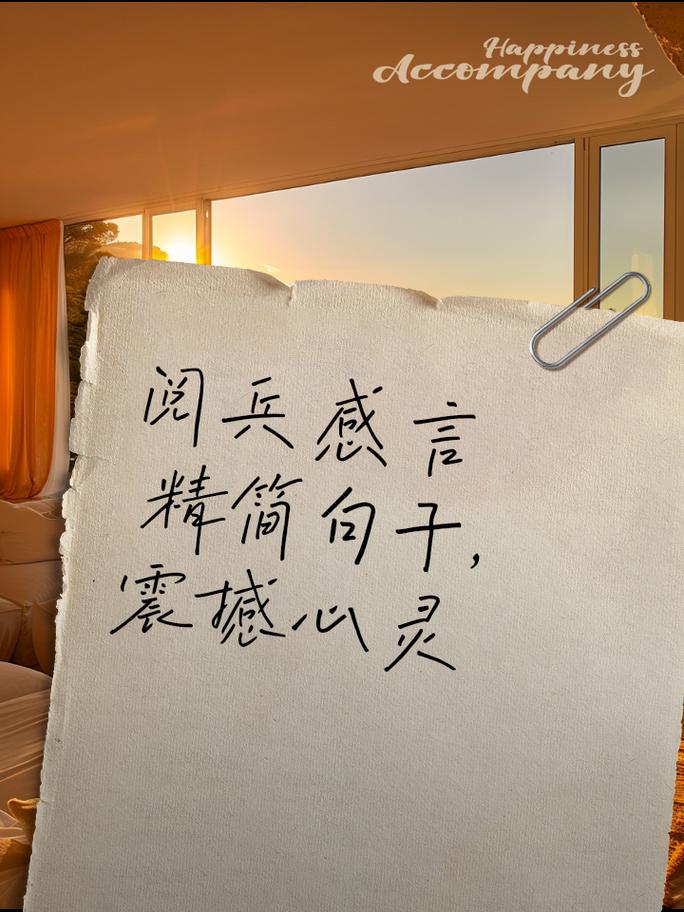 Happiness
Accompany
阅兵感言
精简句子,
震撼心灵